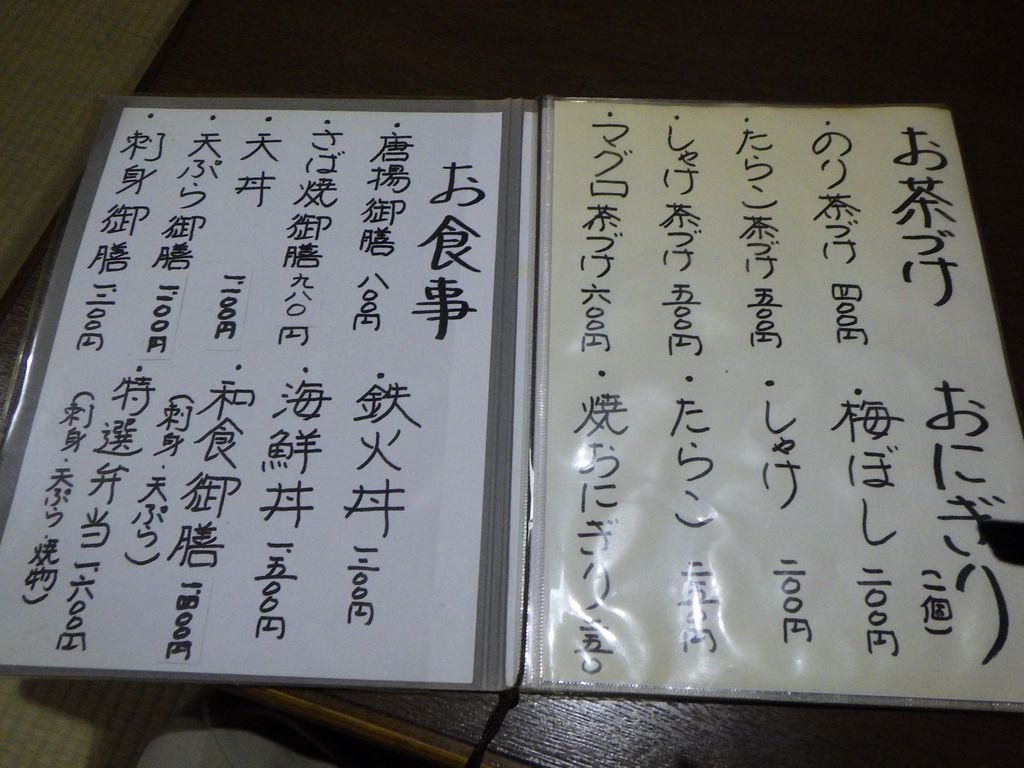 お茶づけ
・のり茶づけ 四〇〇円
・たらこ茶づけ 五〇〇円
・しゃけ茶づけ 五〇〇円
・マグロ茶づけ 六〇〇円
おにぎり(二個)
・梅ぼし 二〇〇円
・しゃけ 二〇〇円
・たらこ 二五〇円
・焼おにぎり 二五〇
お食事
・唐揚御膳 八〇〇円
・さば焼御膳 九八〇円
・天丼
・天ぷら御膳
・刺身御膳
・鉄火丼
・海鮮丼 一、五〇〇円
・和食御膳 一、四〇〇円
(刺身・天ぷら)
・特選弁当 一、六〇〇円
(刺身・天ぷら・焼物)